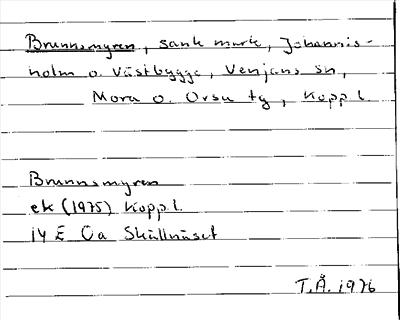 Brunnsmyren, sank mark, Johannis-
holm o. Västbygge, Venjans sn,
Mora o. Orsa tg, Kopp. l.
Brunnsmyren
ek (1975) Kopp. l.
14 E 0a Skållnäset
T.Å. 1976